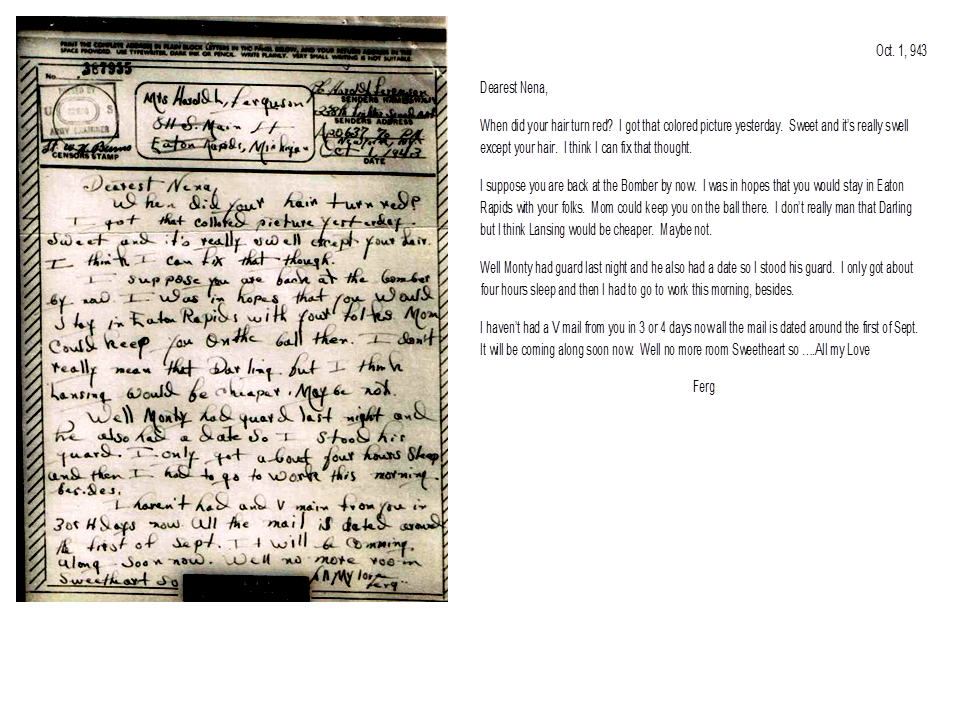 PRINT THE COMPLETE ADDRESS IN PLAIN BLOCK LETTERS IN THE PANEL BELOW, AND YOUR RETURN ADDRESS IN THE
SPACE PROVIDED. USE TYPEWRITER, DARK INK OR PENCIL. WRITE PLAINLY. VERY SMALL WRITING IS NOT SUITABLE.
No. 367935
U S
ARMY EXAMINER
CENSORS STAMP
Mrs Harold L. Ferguson
511 S. Main St
Eaton Rapids, Michigan
Harold Ferguson
SENDERS NAME
SENDERS ADDRESS
APO 637, % P.M.
New York, N.Y.
Oct. 1, 1943
DATE
Dearest Nena,
When did your hair turn red?
I got that collored picture yesterday
Sweet and it's really swell except your hair.
I think I can fix that though.
I suppose you are back at the Bomber
by now. I was in hopes that you would
stay in Eaton Rapids with your folks. Mom
could keep you on the ball then. I don't
really mean that Darling. but I think
Lansing would be cheaper. May be not.
Well Monty had guard last night and
he also had a date so I stood his
guard. I only got about four hours sleep
and then I had to go to work this morning.
besides.
I haven't had and V main from you in
3 or 4 days now. All the mail is dated around
the first of Sept. It will be comming
along soon now. Well no more room
Sweetheart so All My love
Ferg..
Oct. 1, 943
Dearest Nena,
When did your hair turn red? I got that colored picture yesterday. Sweet and it's really swell
except your hair. I think I can fix that thought.
I suppose you are back at the Bomber by now. I was in hopes that you would stay in Eaton
Rapids with your folks. Mom could keep you on the ball there. I don't really man that Darling
but I think Lansing would be cheaper. Maybe not.
Well Monty had guard last night and he also had a date so I stood his guard. I only got about
four hours sleep and then I had to go to work this morning, besides.
I haven't had a V mail from you in 3 or 4 days now all the mail is dated around the first of Sept.
It will be coming along soon now. Well no more room Sweetheart so ....All my Love
Ferg